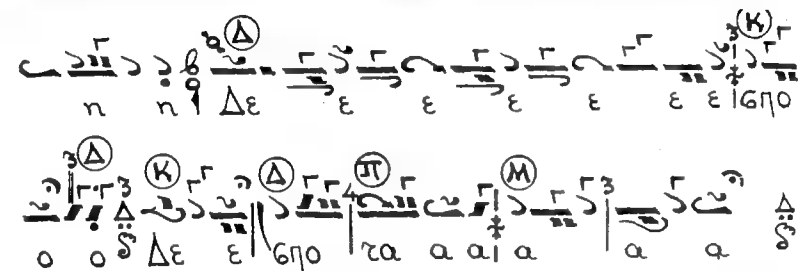 Δ 3 Κ
η η Δε ε ε ε ε ε ε σπο
3 Δ 3 Κ Δ 4 Π Μ 3
ο ο Δε ε σπο τα α α α α α